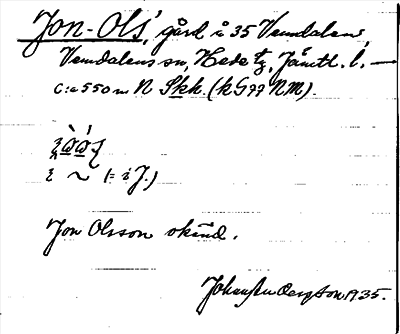 Jon-Ols', gård å 35 Vemdalens,
Vemdalens sn, Hede tg, Jämtl. l. —
C:a 550 m N Skk. (kG77 NM).
i ~ (= i J.)
Jon Olsson okänd.
1935.